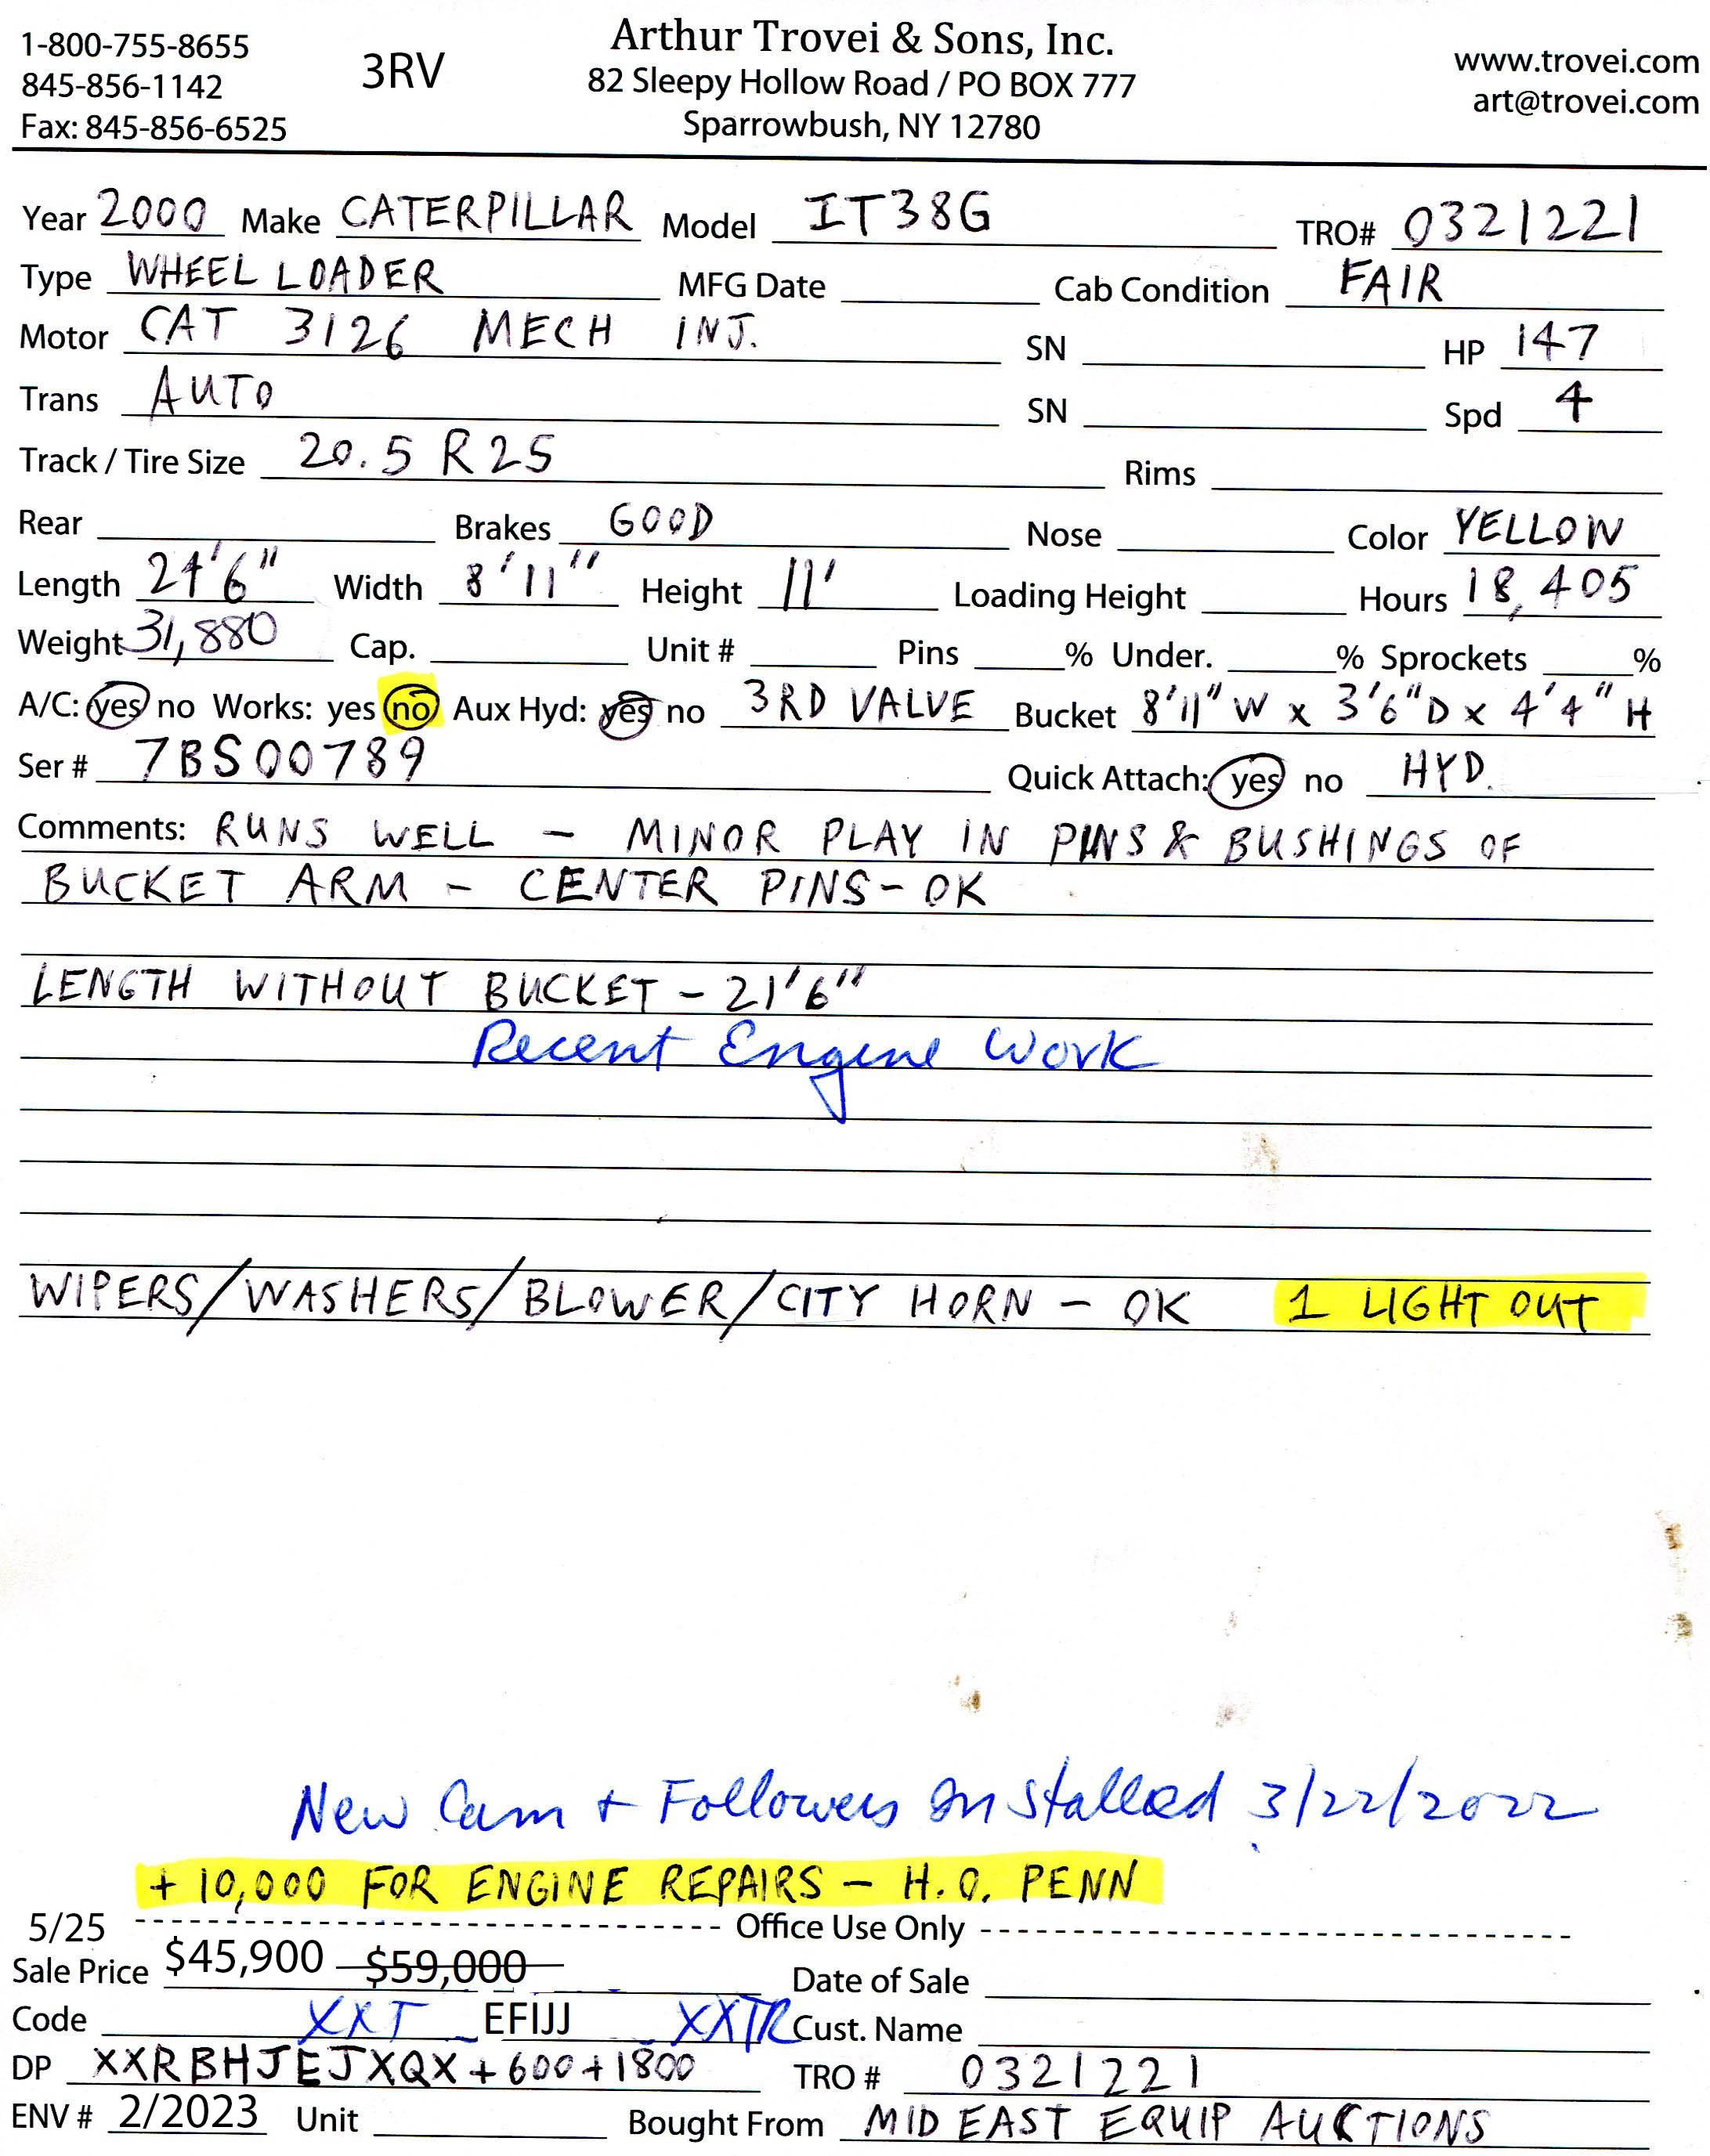 1-800-755-8655
845-856-1142
Fax: 845-856-6525
3RV
Arthur Trovei & Sons, Inc.
82 Sleepy Hollow Road / PO BOX 777
Sparrowbush, NY 12780
www.trovei.com
art@trovei.com
Year 2000 Make CATERPILLAR Model IT38G TRO# 0321221
Type WHEEL LOADER MFG Date Cab Condition FAIR
Motor CAT 3126 MECH INJ. SN HP 147
Trans AUTO SN Spd 4
Track / Tire Size 20.5 R25 Rims
Rear Brakes GOOD Nose Color YELLOW
Length 24'6" Width 8'11" Height 11' Loading Height Hours 18,405
Weight 31,880 Cap. Unit # Pins % Under. % Sprockets %
A/C: yes no Works: yes no Aux Hyd: yes no 3RD VALVE Bucket 8'11" W x 3'6" D x 4'4" H
Ser # 7BS00789 Quick Attach: yes no HYD.
Comments: RUNS WELL - MINOR PLAY IN PINS & BUSHINGS OF
BUCKET ARM - CENTER PINS - OK
LENGTH WITHOUT BUCKET - 21'6"
Recent Engine Work
WIPERS/WASHERS/BLOWER/CITY HORN - OK 1 LIGHT OUT
New Cam + Followers Installed 3/22/2022
+ 10,000 FOR ENGINE REPAIRS - H.O. PENN
5/25 Office Use Only
Sale Price $45,900 $59,000 Date of Sale
Code XXT EFIJJ XXTR Cust. Name
DP XXRBHJEJXQX + 600 + 1800 TRO # 0321221
ENV # 2/2023 Unit Bought From MID EAST EQUIP AUCTIONS